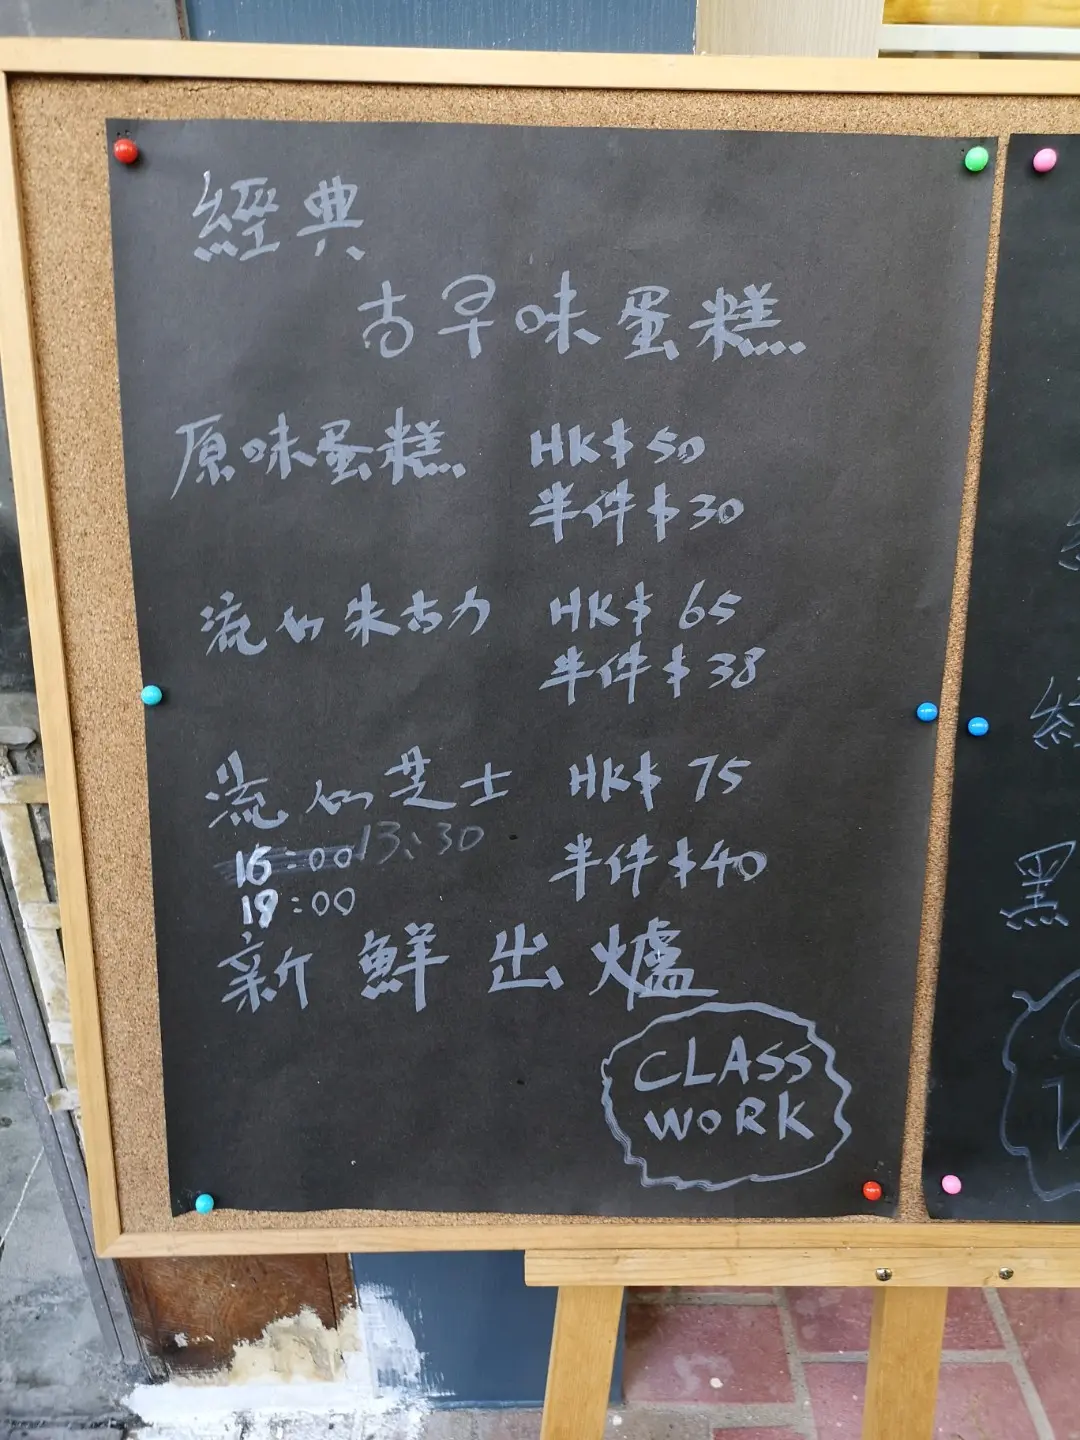 經典
古早味蛋糕
原味蛋糕 HK$50
半件$30
流心朱古力 HK$65
半件$38
流心芝士 HK$75
16:00 13:30
半件$40
19:00
新鮮出爐
CLASS
WORK
黑